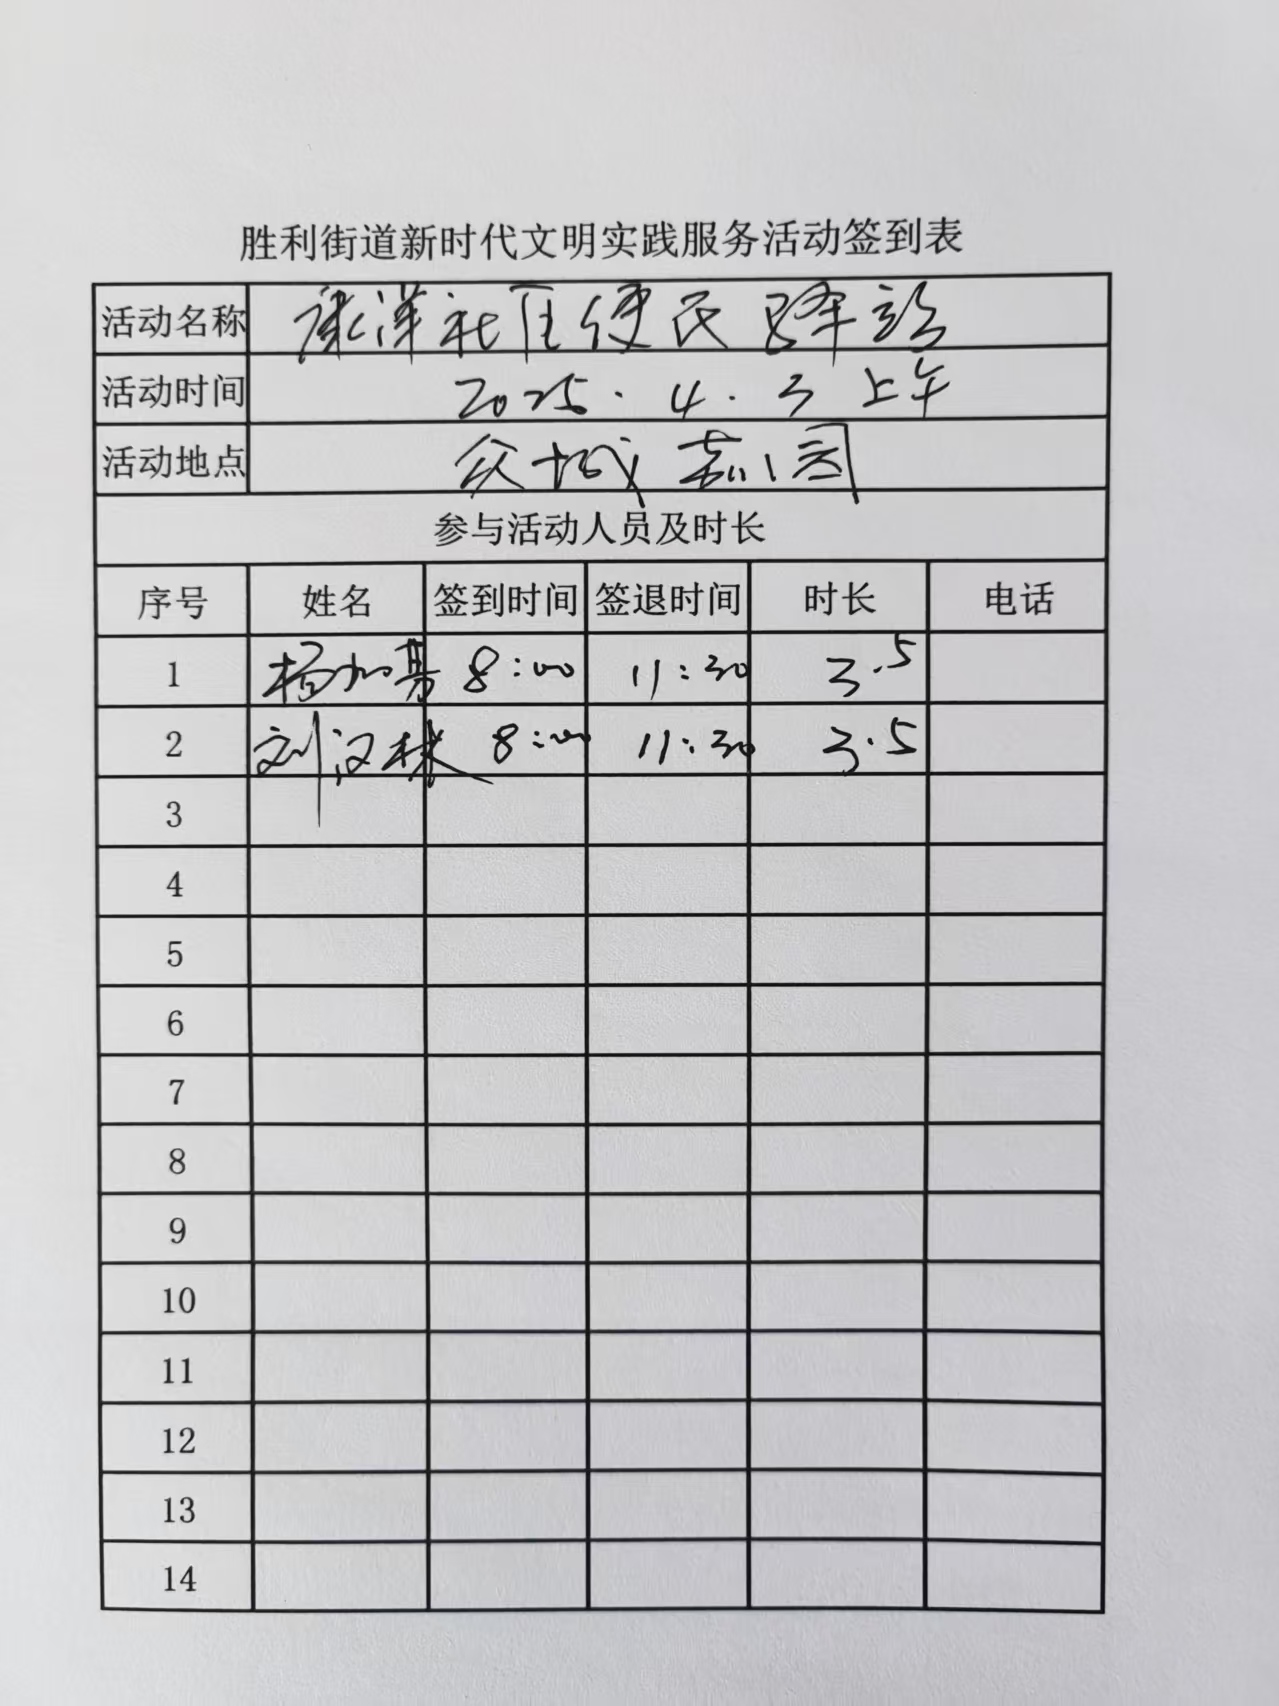 胜利街道新时代文明实践服务活动签到表
活动名称 康洋社区便民驿站
活动时间 2025.4.3 上午
活动地点 众城
参与活动人员及时长
序号 姓名 签到时间 签退时间 时长 电话
1 杨加 8:00 11:30 3.5
2 刘汉林 8:00 11:30 3.5
3
4
5
6
7
8
9
10
11
12
13
14